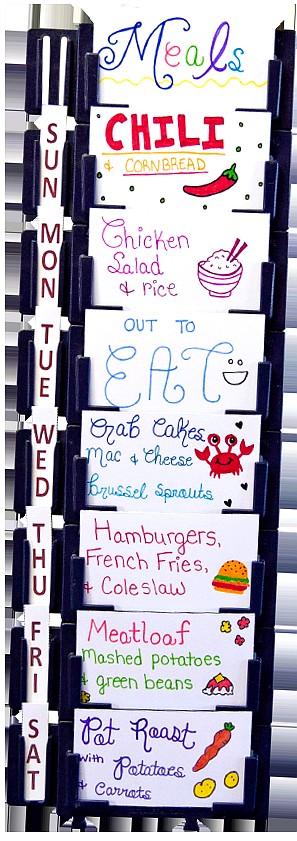 Meals
SUN
CHILI
& CORNBREAD
MON
Chicken
Salad
& rice
TUE
OUT TO
EAT
WED
Crab Cakes
Mac & Cheese
Brussel Sprouts
THU
Hamburgers,
French Fries,
& Coleslaw
FRI
Meatloaf
Mashed potatoes
& green beans
SAT
Pot Roast
with Potatoes
& Carrots